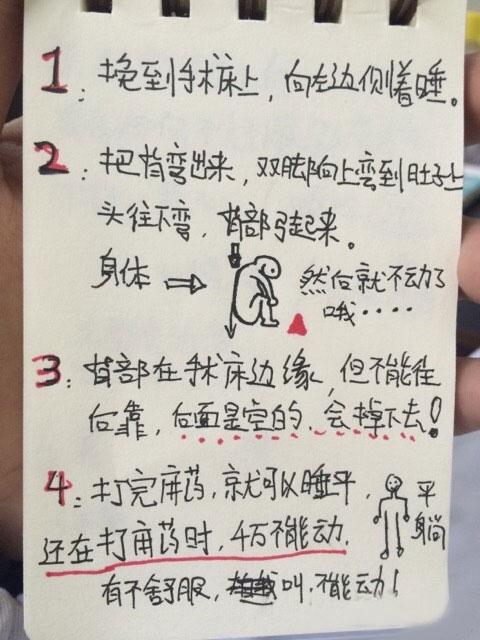 1：挽到手术床上，向左边侧着睡。
2：把背弯出来，双脚向上弯到肚子上
头往下弯，背部弓起来。
身体
然后就不动了
哦····
3：背部在手术床边缘，但不能往
后靠，后面是空的，会掉下去！
4：打完麻药，就可以睡平，
平
躺
还在打麻药时，千万不能动，
有不舒服，叫，不能动！